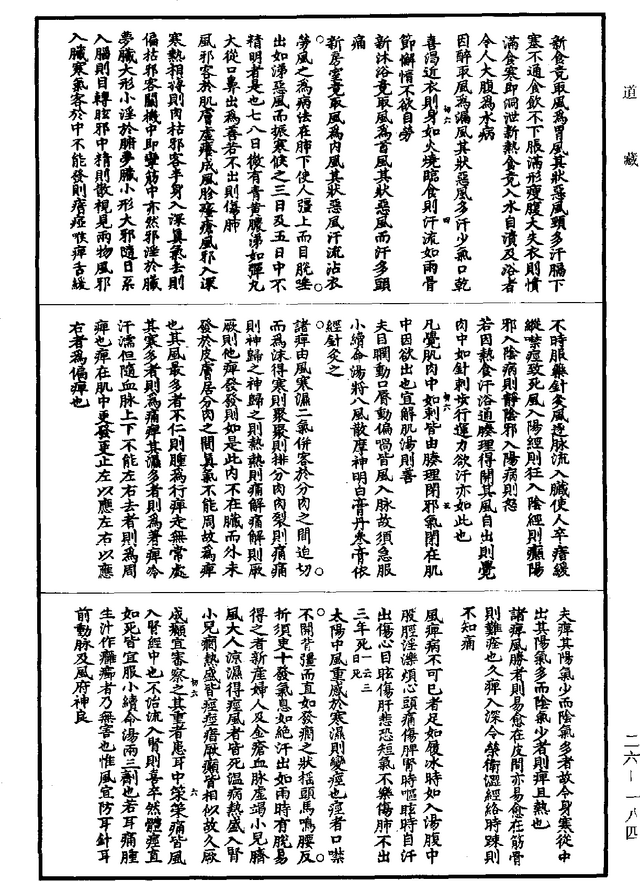 道藏
新食竟取風為胃風其狀惡風頸多汗膈下
塞不通食飲不下脹滿形瘦腹大失衣則憤
滿食寒即洞泄新熱食竟入水自漬及浴者
令人大腹為水病
因醉取風為漏風其狀惡風多汗少氣口乾
喜渴近衣則身如火燒臨食則汗流如雨骨
節懈惰不欲自勞
新沐浴竟取風為首風其狀惡風而汗多頭
痛
新房室竟取風為内風其狀惡風汗流沾衣
勞風之為病法在肺下使人彊上而目脫唾
出如涕惡風而振寒候之三日及五日中不
精明者是也七八日後有青黄膿涕如彈丸
大從口鼻出為善若不出則傷肺
風邪客於肌膚虛癢成風胗瘙瘡風邪入深
寒熱相摶則肉枯邪客半身入深真氣去則
偏枯邪客關機中即攣筋中亦然邪淫於臟
夢臟大形小淫於腑夢臟小形大邪隨目系
入腦則目轉眩邪中精則散視見兩物風邪
入臟寒氣客於中不能發則瘖瘂喉痺舌緩
不時服藥針灸風逐脉流入臟使人卒瘖緩
縱噤痙致死風入陽經則狂入陰經則癲陽
邪入陰病則靜陰邪入陽病則怒
若因熱食汗浴通腠理得開其風自出則覺
肉中如針刺步行運力欲汗亦如此也
凡覺肌肉中如刺皆由腠理閉邪氣閉在肌
中因欲出也宜解肌湯則善
夫目瞤動口脣動偏喎皆風入脉故須急服
小續命湯將八風散摩神明白膏丹參膏依
經針灸之
諸痺由風寒濕二氣併客於分肉之間迫切
而為沫得寒則聚聚則排分肉肉裂則痛痛
則神歸之神歸之則熱熱則痛解痛解則厥
厥則他痺發發則如是此内不在臟而外未
發於皮膚居分肉之間真氣不能周故為痺
也其風最多者不仁則腫為行痺走無常處
其寒多者則為痛痺其濕多者則為著痺冷
汗濡但隨血脉上下不能左右去者則為周
痺也痺在肌中更發更止左以應左右以應
右者為偏痺也
夫痺其陽氣少而陰氣多者故令身寒從中
出其陽氣多而陰氣少者則痺且熱也
諸痺風勝者則易愈在皮間亦易愈在筋骨
則難痊也久痺入深令榮衛澀經絡時踈則
不知痛
風痺病不可已者足如履冰時如入湯腹中
股脛淫濼煩心頭痛傷脾腎時嘔眩時自汗
出傷心目眩傷肝悲恐短氣不樂傷肺不出
三年死一云三日死
太陽中風重感於寒濕則變痙也痙者口噤
不開背彊而直如發癇之狀搖頭馬鳴腰反
折須臾十發氣息如絕汗出如雨時有脫易
得之者新產婦人及金瘡血脉虛竭小兒臍
風大人涼濕得痙風者皆死温病熱盛入腎
小兒癇熱盛皆痙痙瘖厥癲皆相似故久厥
成癲宜審察之其重者患耳中策策痛皆風
入腎經中也不治流入腎則喜卒然體痙直
如死皆宜服小續命湯兩三劑也若耳痛腫
生汁作癰癤者乃無害也惟風宜防耳針耳
前動脉及風府神良
二六—一八四